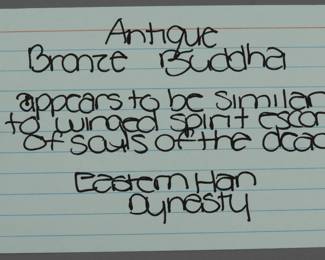 Antique
Bronze Buddha
appears to be similar
to winged spirit escor
of souls of the dead
Eastern Han
Dynesty